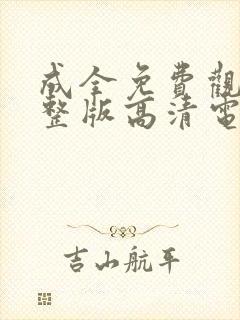 成全免費觀
整版高清電
吉山航平